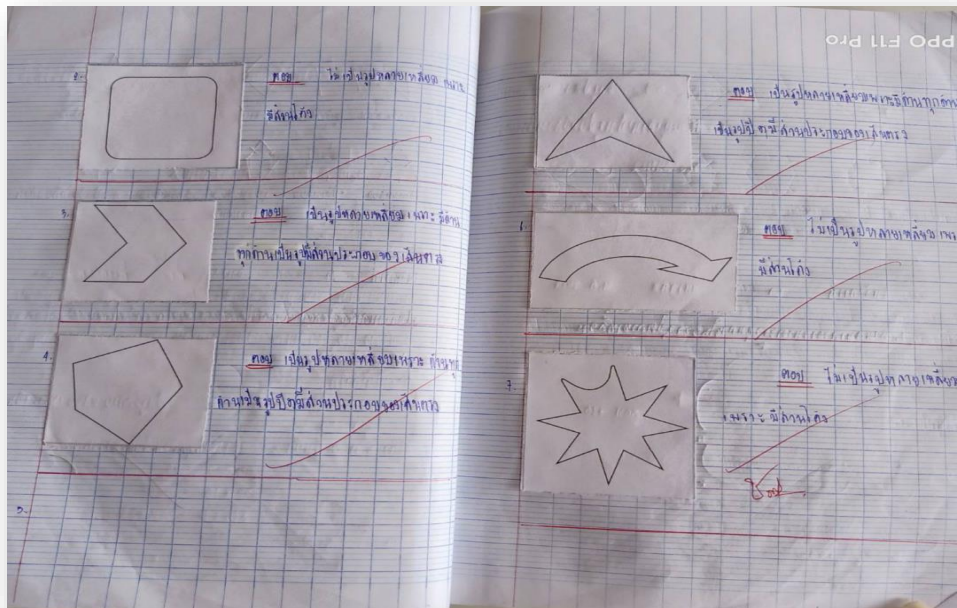 2. ตอบ ไม่เป็นรูปหลายเหลี่ยม เพราะ
มีส่วนโค้ง
3. ตอบ เป็นรูปหลายเหลี่ยม เพราะ มีด้าน
ทุกด้านเป็นรูปมีส่วนประกอบของเส้นตรง
4. ตอบ เป็นรูปหลายเหลี่ยมเพราะ ด้านทุก
ด้านเป็นรูปปิดมีส่วนประกอบของเส้นตรง
5.
ตอบ เป็นรูปหลายเหลี่ยมเพราะมีด้านทุกด้าน
เป็นรูปปิดมีส่วนประกอบของเส้นตรง
6. ตอบ ไม่เป็นรูปหลายเหลี่ยม เพร
มีส่วนโค้ง
7. ตอบ ไม่เป็นรูปหลายเหลี่ยม
เพราะ มีส่วนโค้ง
PPO F11 Pro